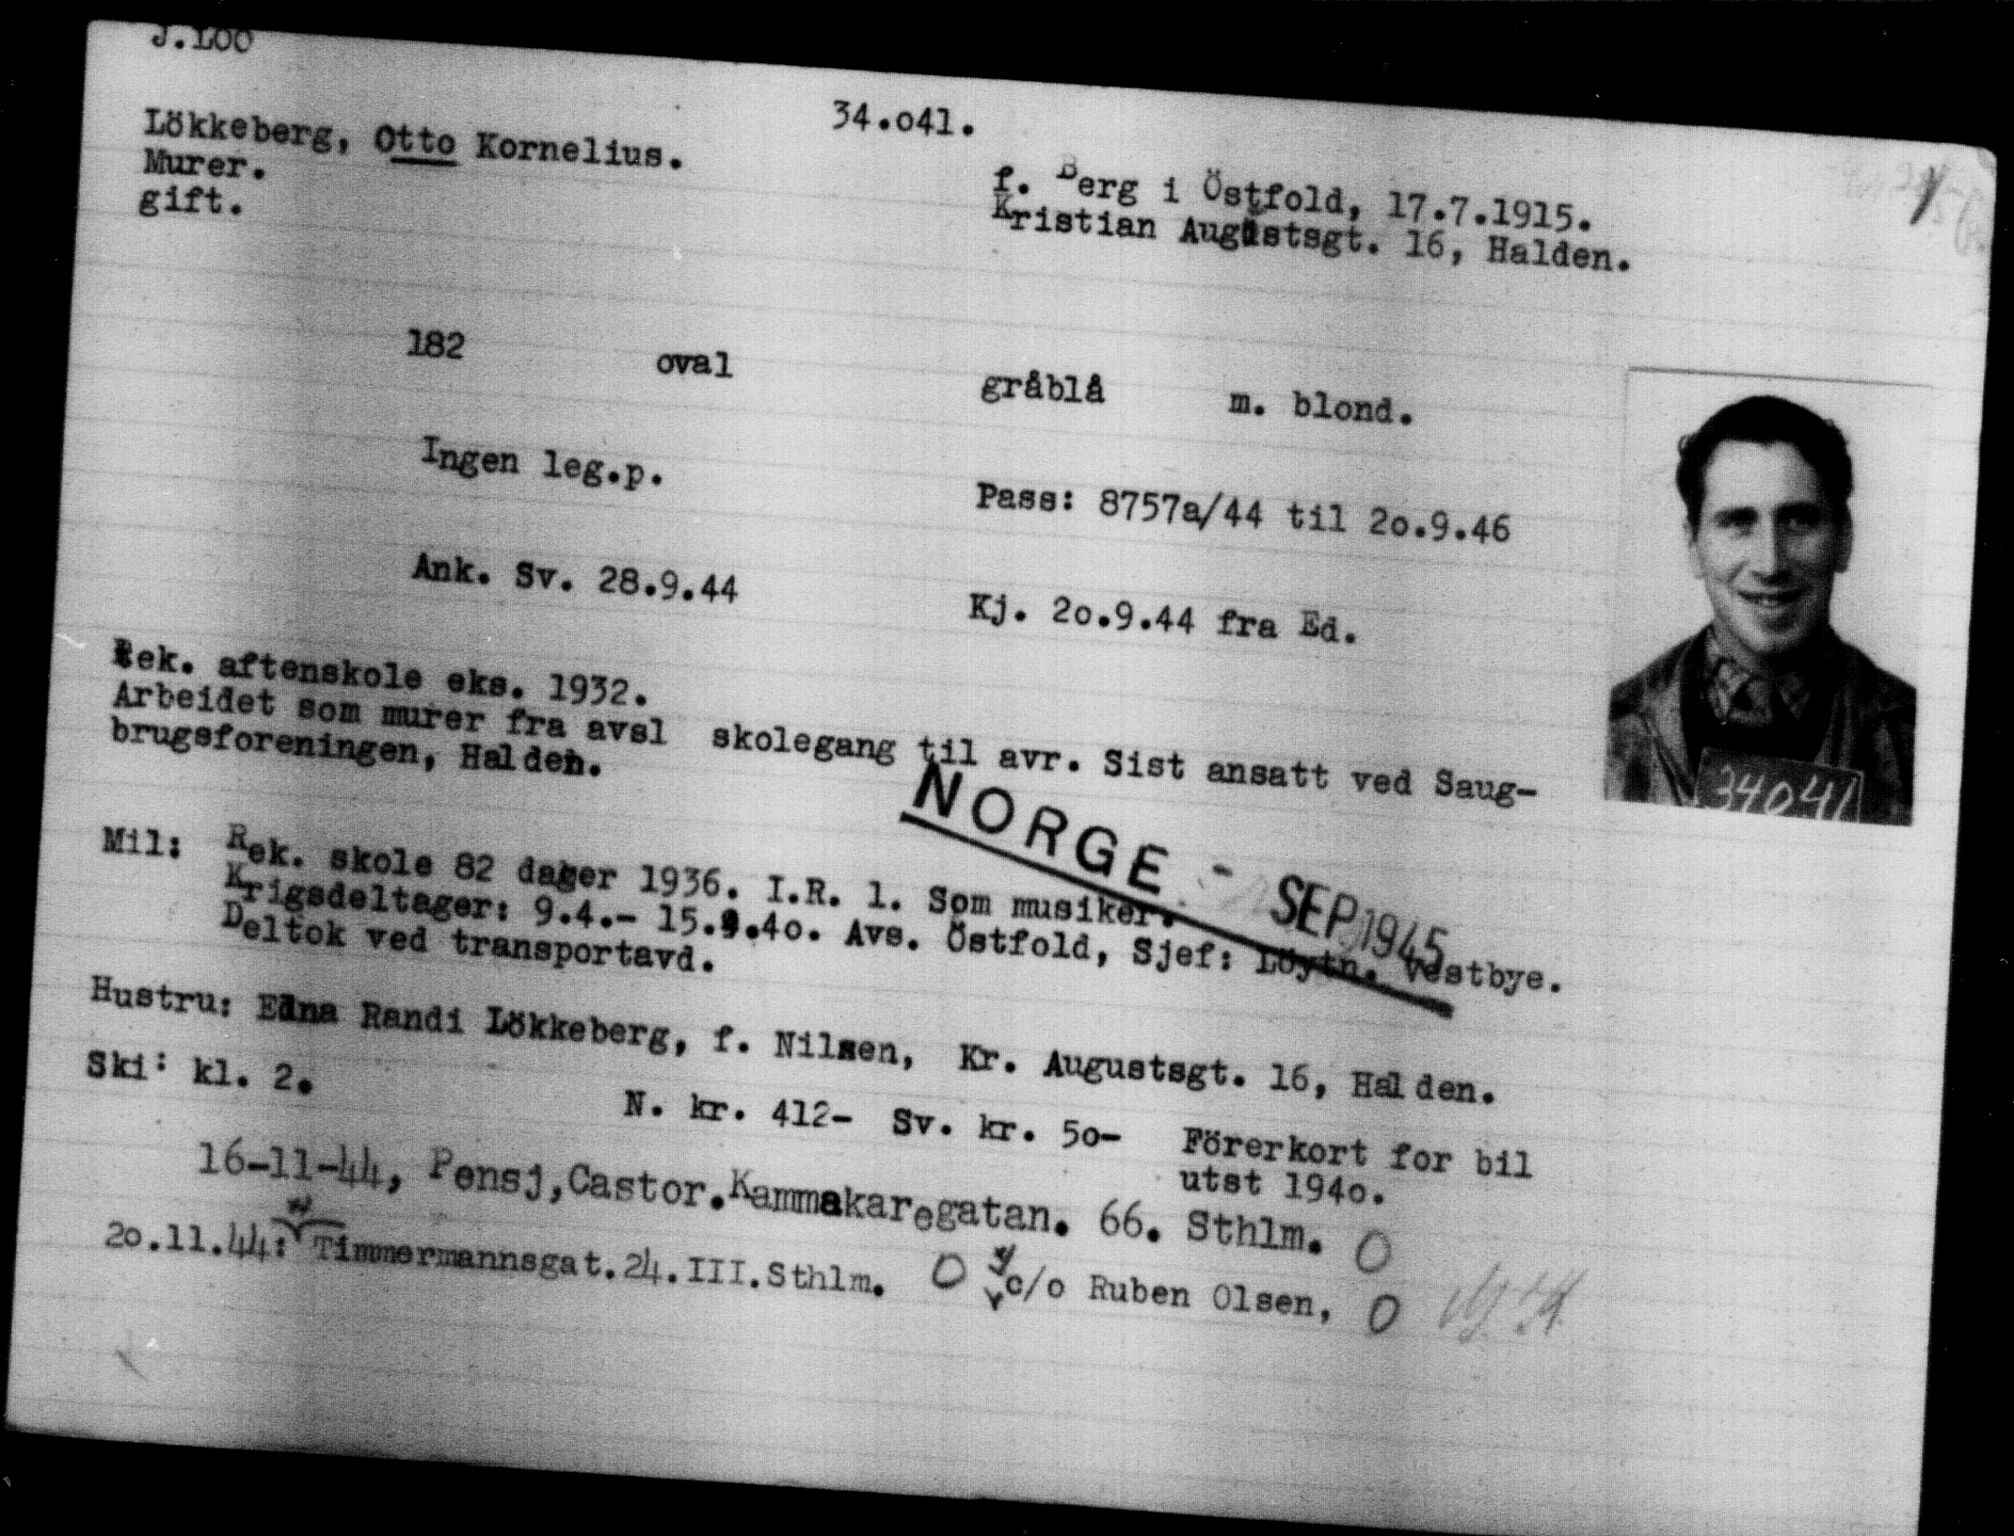 J.Loo
34.o41.
Lökkeberg, Otto Kornelius.
Murer.
gift.
f. Berg i Östfold, 17.7.1915.
Kristian Augustsgt. 16, Halden.
182 oval gråblå m. blond.
Ingen leg.p. Pass: 8757a/44 til 2o.9.46
Ank. Sv. 28.9.44 Kj. 2o.9.44 fra Ed.
34041
Tek. aftenskole eks. 1932.
Arbeidet som murer fra avsl skolegang til avr. Sist ansatt ved Saug-
brugsforeningen, Halden.
NORGE - SEP 1945
Mil: Rek. skole 82 dager 1936. I.R. 1. Som musiker.
Krigsdeltager: 9.4.- 15.4.4o. Avs. Östfold, Sjef: Löytn. Vestbye.
Deltok ved transportavd.
Hustru: Edna Randi Lökkeberg, f. Nilsen, Kr. Augustsgt. 16, Halden.
Ski: kl. 2.
N. kr. 412- Sv. kr. 5o- Förerkort for bil
utst 194o.
16-11-44, Pensj,Castor.Kammakaregatan. 66. Sthlm. O
2o.11.44: Timmermannsgat.24.III.Sthlm. O c/o Ruben Olsen, O